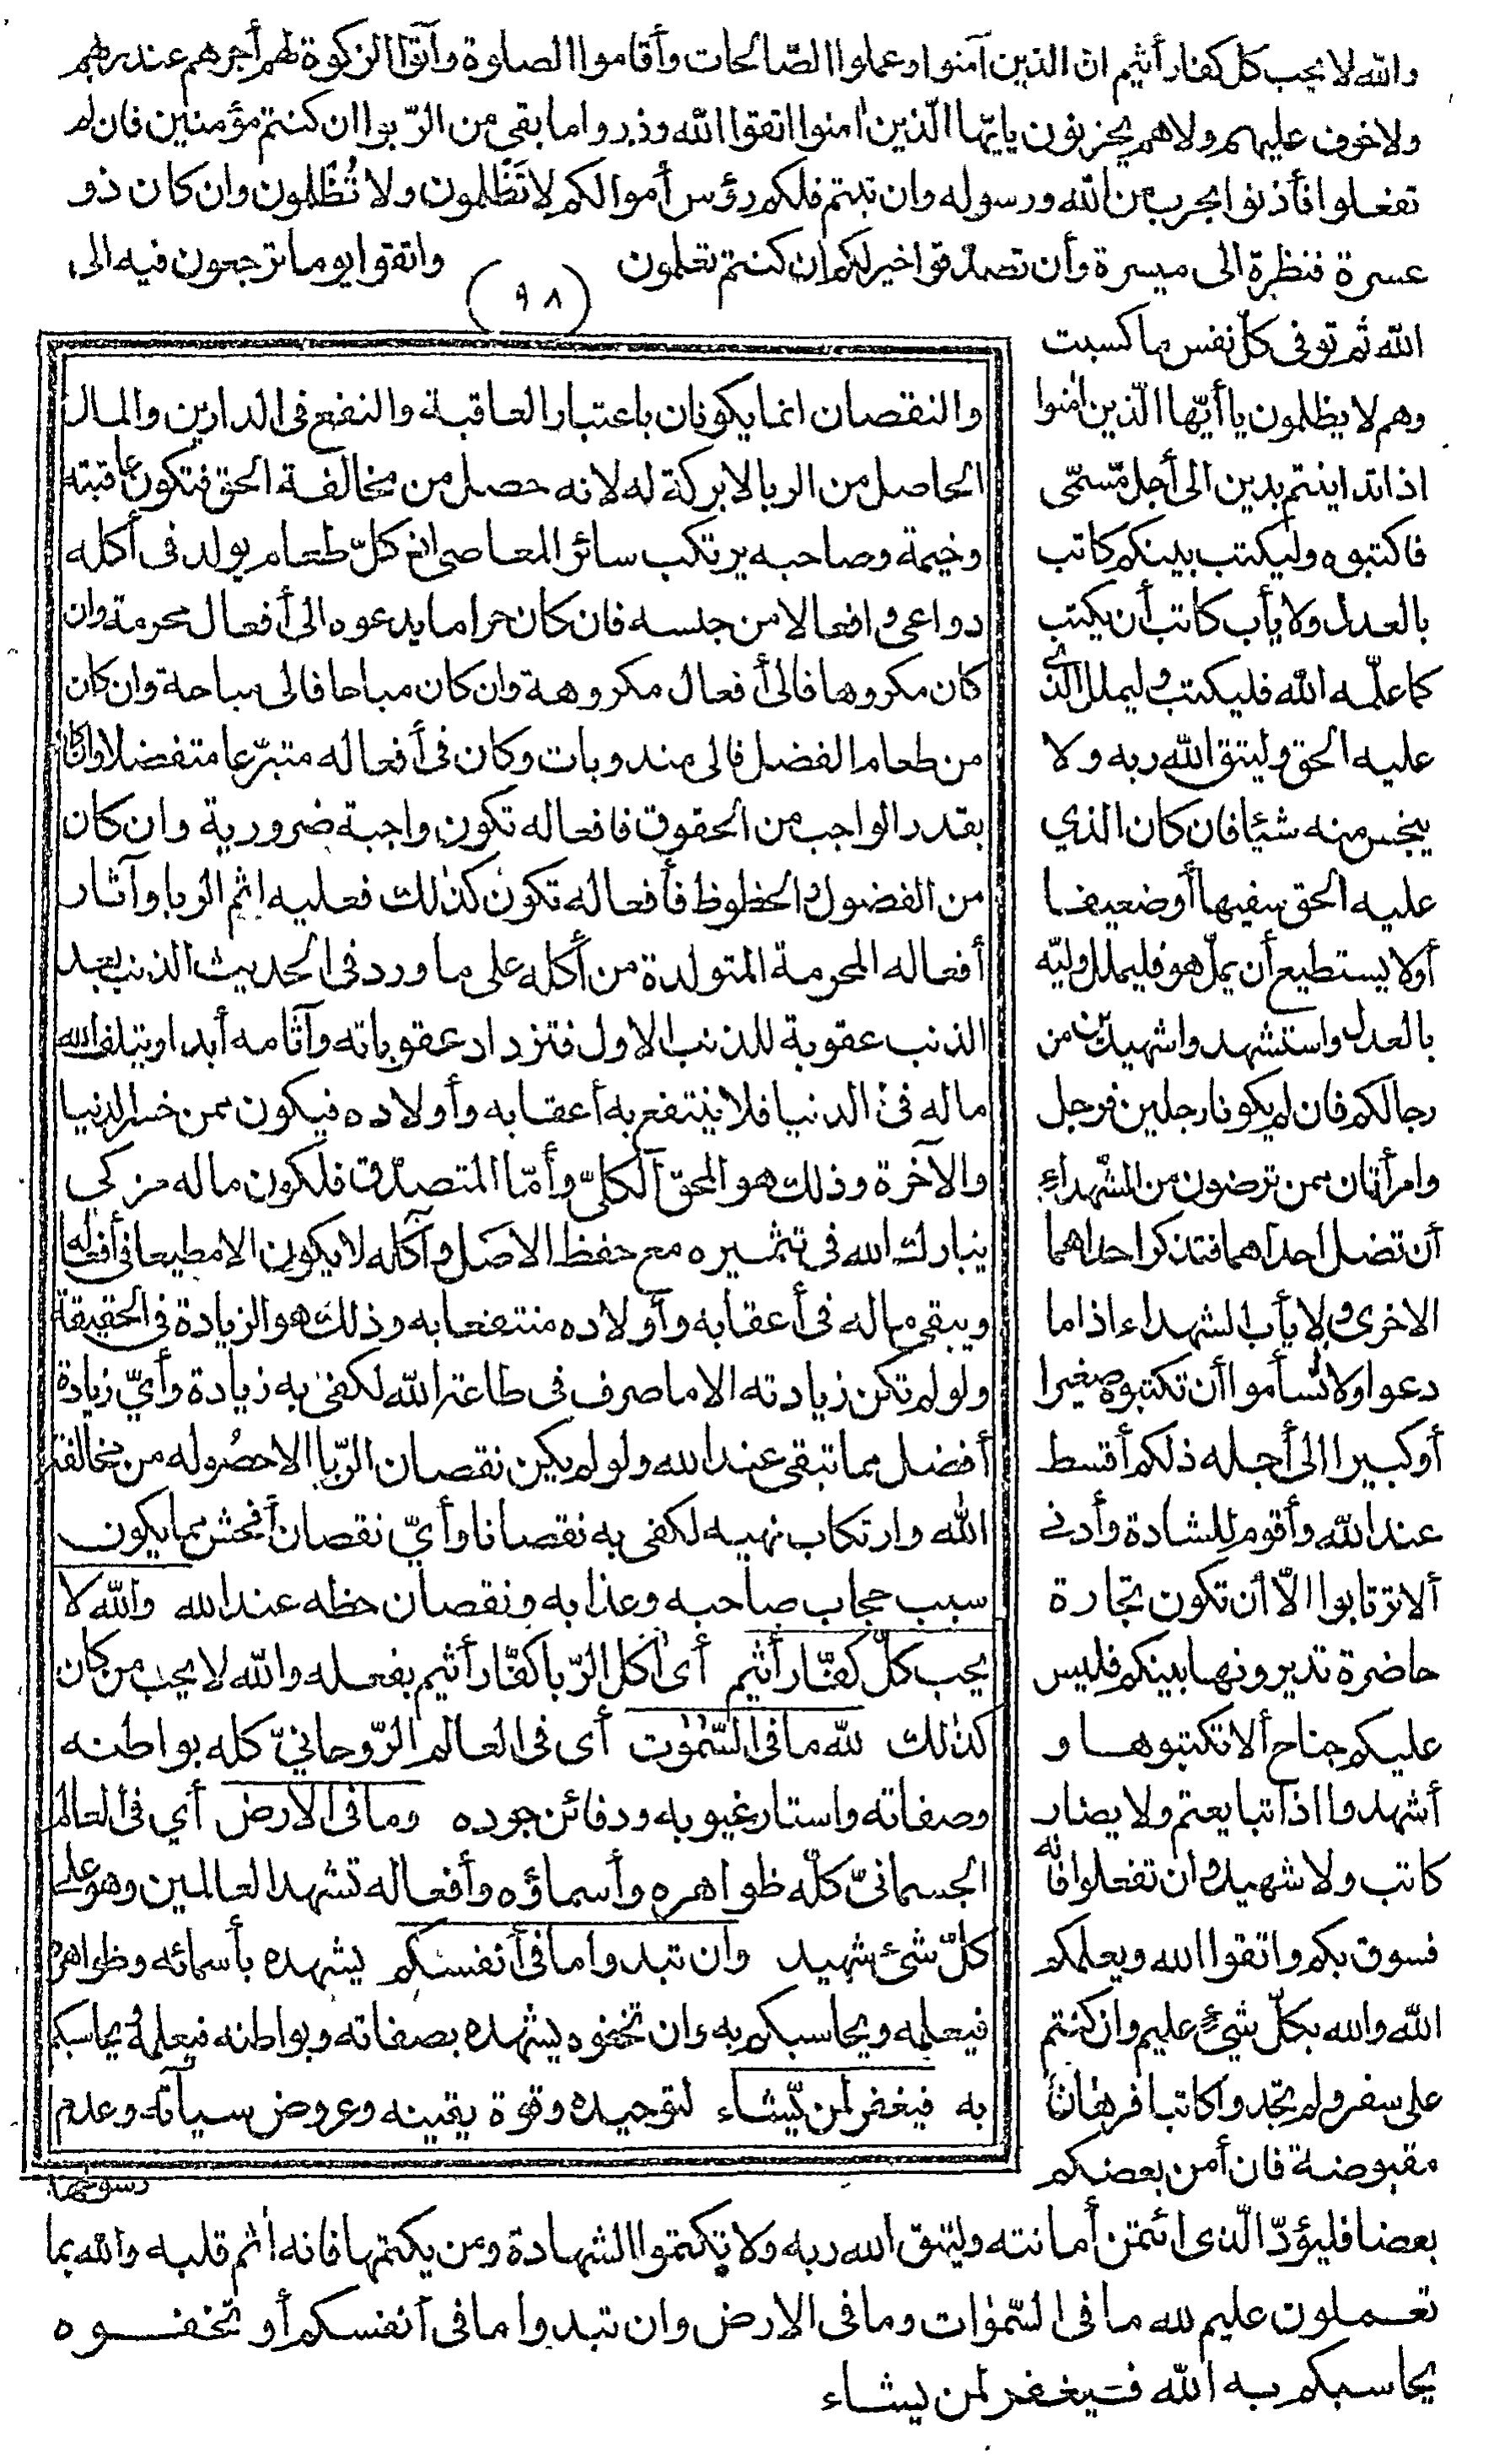 والله لا يحب كل كفار أثيم ان الذين آمنوا وعملوا الصّالحات وأقاموا الصلوة وآتوا الزكوة لهم أجرهم عند ربهم
ولا خوف عليهم ولا هم يحزنون يا ايّها الّذين اٰمنوا اتقوا الله وذروا ما بقي من الرّبوا ان كنتم مؤمنين فان لم
تفعلوا فأذنوا بحرب من الله ورسوله وان تبتم فلكم رؤس أموالكم لا تَظْلمون ولا تُظْلمون وان كان ذو
عسرة فنظرة الى ميسرة وأن تصدقوا خير لكم ان كنتم تعلمون واتقوا يوما ترجعون فيه الى
(٩٨)
الله ثم توفى كلّ نفس ما كسبت
وهم لا يظلمون يا أيّها الّذين اٰمنوا
اذا تداينتم بدين الى أجل مّسمّى
فاكتبوه وليكتب بينكم كاتب
بالعدل ولا يأب كاتب أن يكتب
كما علّمه الله فليكتب وليملل الذى
عليه الحق وليتق الله ربه ولا
يبخس منه شيئا فان كان الذي
عليه الحق سفيها أو ضعيفا
أو لا يستطيع أن يملّ هو فليملل وليّه
بالعدل واستشهدوا شهيدين من
رجالكم فان لم يكونا رجلين فرجل
وامرأتان ممن ترضون من الشّهداء
أن تضل احداهما فتذكر احداهما
الاخرى ولا يأب الشهداء اذا ما
دعوا ولا تسأموا أن تكتبوه صغيرا
أو كبيرا الى أجله ذلكم أقسط
عند الله وأقوم للشادة وأدنى
ألا ترتابوا الّا أن تكون تجارة
حاضرة تديرونها بينكم فليس
عليكم جناح ألا تكتبوها و
أشهدوا اذا تبايعتم ولا يضار
كاتب ولا شهيد وان تفعلوا فانه
فسوق بكم واتقوا الله ويعلمكم
الله والله بكلّ شيء عليم وان كنتم
على سفر ولم تجدوا كاتبا فرهان
مقبوضة فان أمن بعضكم
والنقصان انما يكونان باعتبار العاقبة والنفع فى الدارين والمال
الحاصل من الربا لا بركة له لانه حصل من مخالفة الحق فتكون عاقبته
وخيمة وصاحبه يرتكب سائر المعاصى اذ كلّ طعام يولد فى أكله
دواعى وافعالا من جنسه فان كان حراما يدعوه الى أفعال محرمة وان
كان مكروها فالى أفعال مكروهة وان كان مباحا فالى مباحة وان كان
من طعام الفضل فالى مندوبات وكان فى أفعاله متبرّعا متفضلا وان كان
بقدر الواجب من الحقوق فافعاله تكون واجبة ضرورية وان كان
من الفضول والحظوظ فأفعاله تكون كذلك فعليه اثم الربا وآثار
أفعاله المحرمة المتولدة من أكله على ما ورد فى الحديث الذنب بعد
الذنب عقوبة للذنب الاول فتزداد عقوباته وآثامه أبدا ويتلف الله
ماله فى الدنيا فلا ينتفع به أعقابه وأولاده فيكون ممن خسر الدنيا
والآخرة وذلك هو المحق الكلىّ وأمّا المتصدّق فلكون ماله مزكى
يبارك الله فى تثميره مع حفظ الاصل وآكله لا يكون الا مطيعا فى أفعاله
ويبقى ماله فى أعقابه وأولاده منتفعا به وذلك هو الزيادة فى الحقيقة
ولو لم تكن زيادته الا ما صرف فى طاعة الله لكفى به زيادة وأيّ زيادة
أفضل مما تبقى عند الله ولو لم يكن نقصان الرّبا الا حصوله من مخالفة
الله وارتكاب نهيه لكفى به نقصانا وأيّ نقصان أفحش مما يكون
سبب حجاب صاحبه وعذابه ونقصان حظه عند الله والله لا
يحب كلّ كفّار أثيم أى اٰكل الرّبا كفّار أثيم بفعله والله لا يحب من كان
كذلك لله ما فى السّمٰوٰت أى فى العالم الرّوحانيّ كله بواطنه
وصفاته واستار غيوبه ودفائن جوده وما فى الارض أي فى العالم
الجسمانىّ كلّه ظواهره وأسماؤه وأفعاله تشهد العالمين وهو على
كلّ شئ شهيد وان تبدوا ما فى أنفسكم يشهده بأسمائه وظواهره
فيعلمه ويحاسبكم به وان تخفوه يشهده بصفاته وبواطنه فيعلمه ويحاسبكم
به فيغفر لمن يّشاء لتوحيده وقوة يقينه وعروض سيآته وعدم
رسوخها
بعضا فليؤدّ الّذى ائتمن أمانته وليتق الله ربه ولا تكتموا الشهادة ومن يكتمها فانه أثم قلبه والله بما
تعملون عليم لله ما فى السّمٰوات وما فى الارض وان تبدوا ما فى أنفسكم أو تخفوه
يحاسبكم به الله فيغفر لمن يشاء